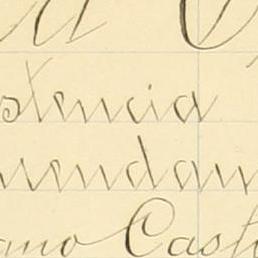 stencia
mendan
ano Cast